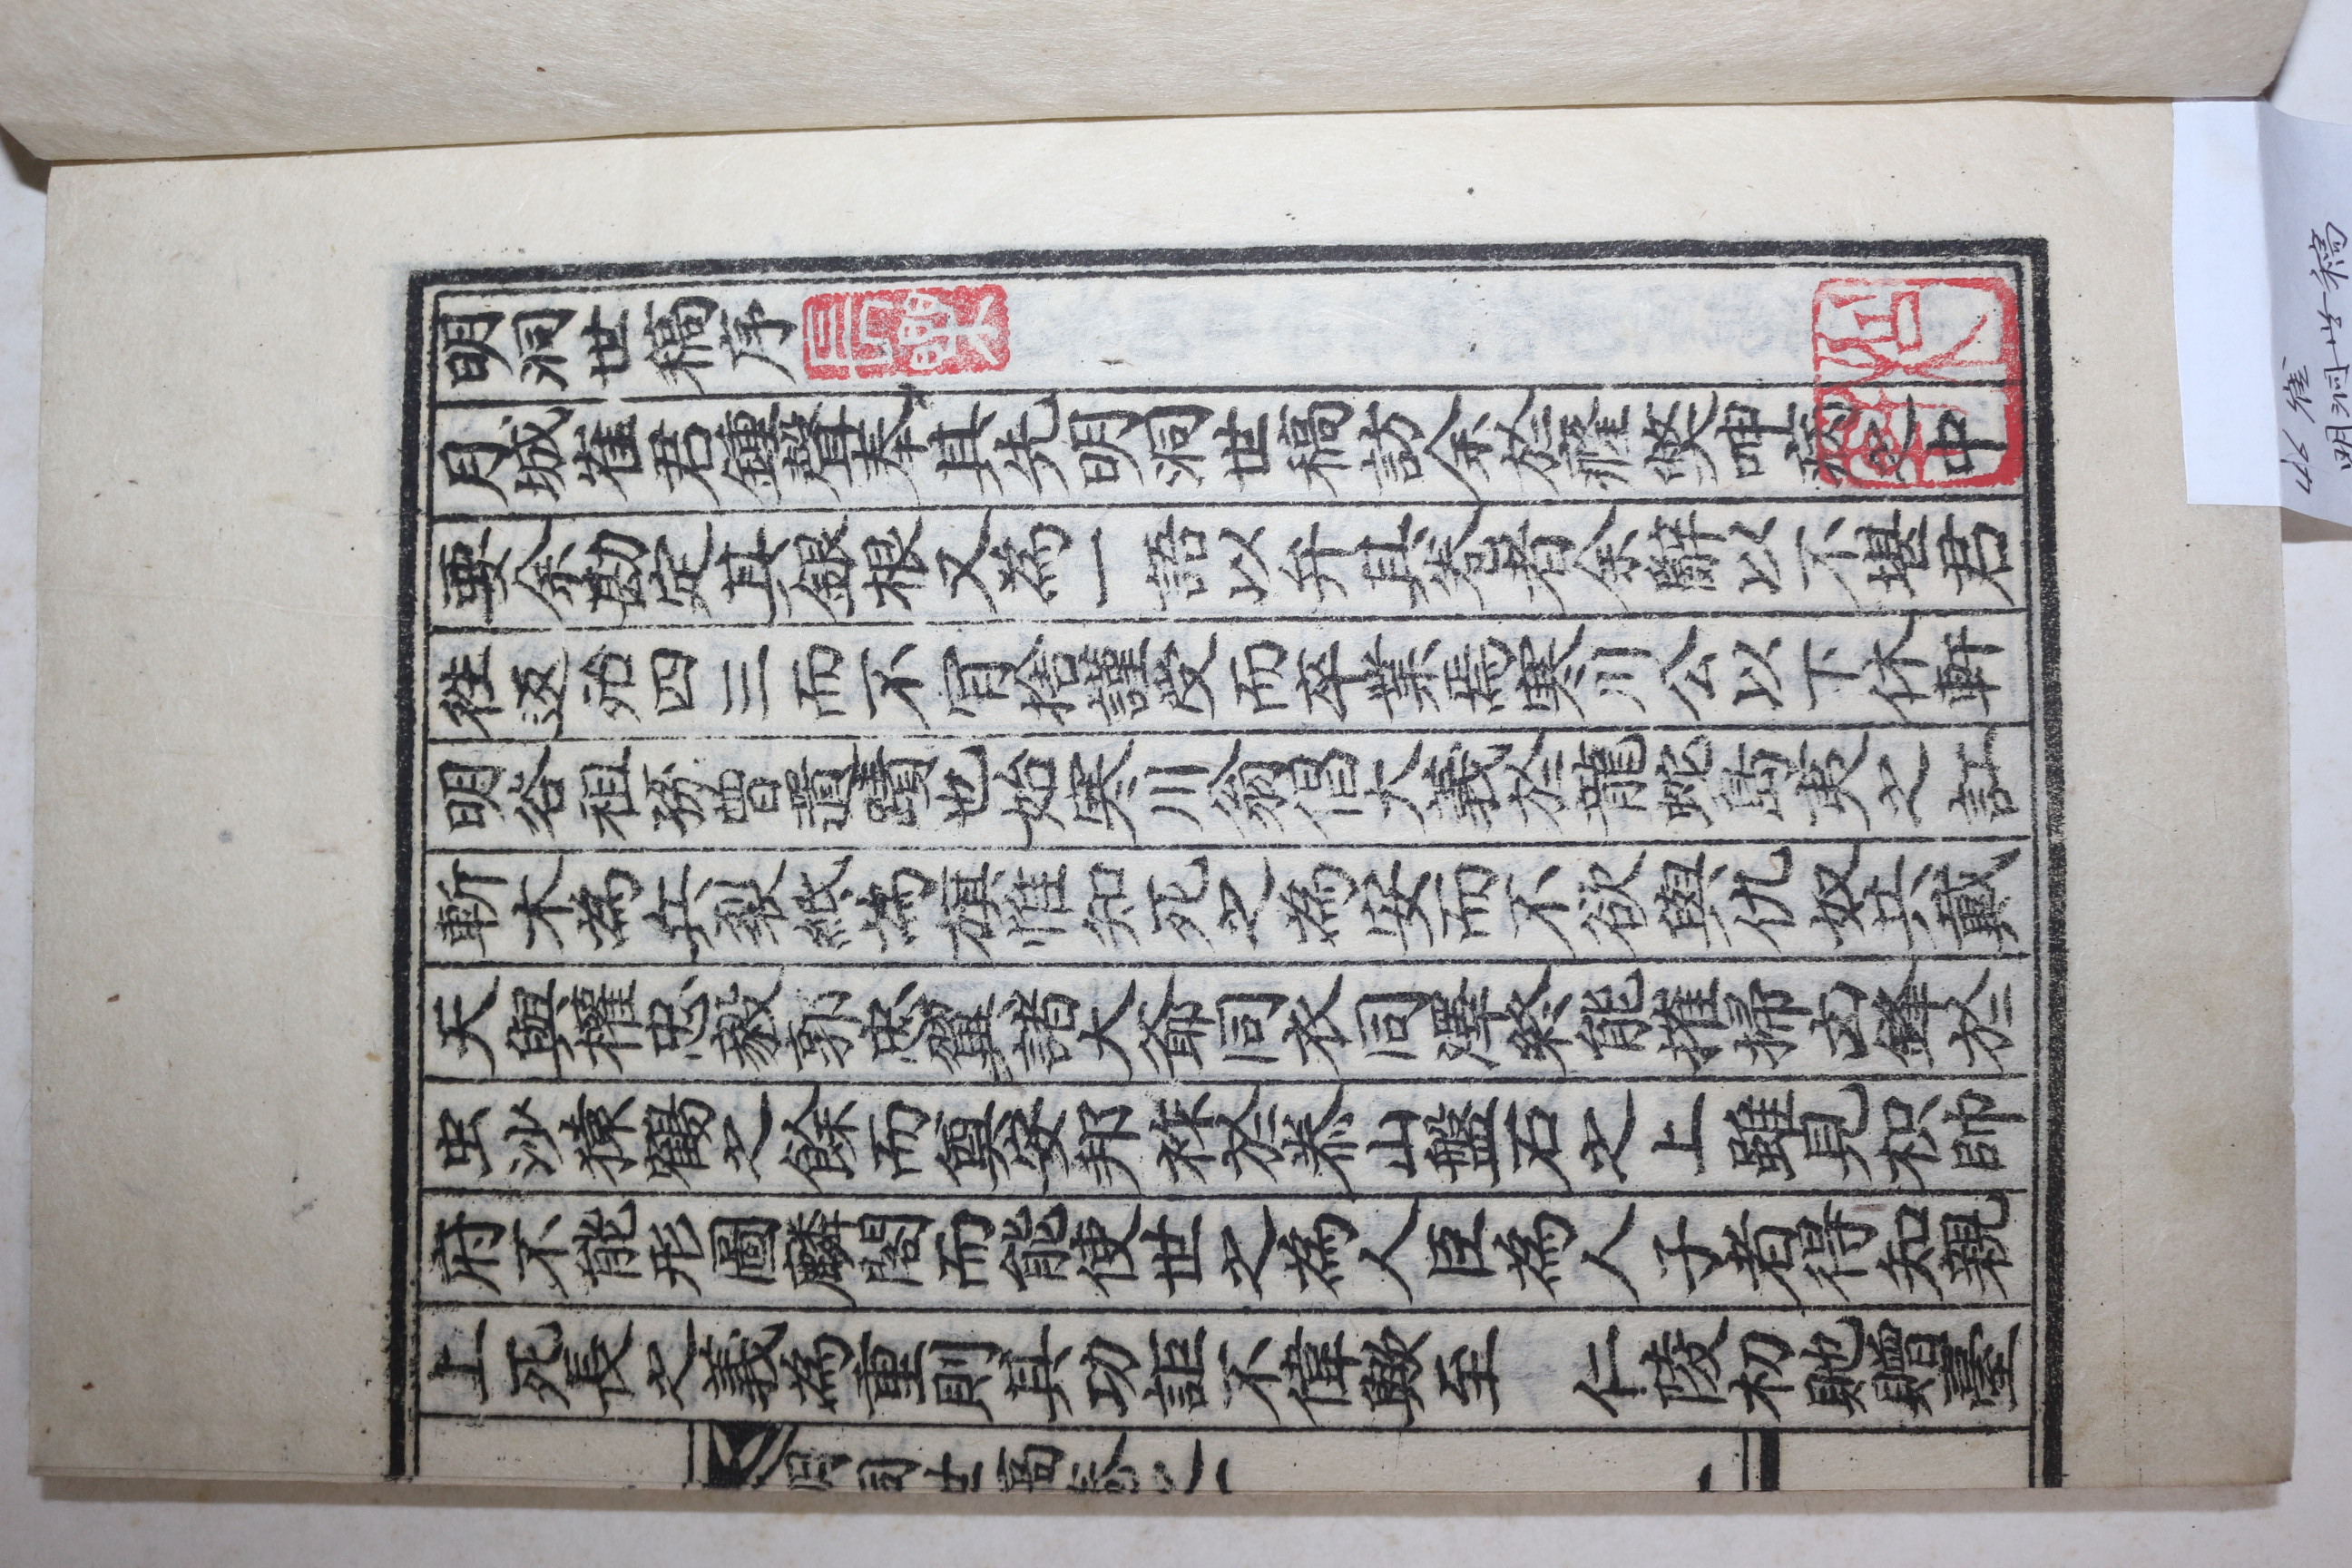 明洞世稿序
月城崔君鍾聲奉其先明洞世稿訪余於癃獘呻病之中
要余勘定其銀根又爲一語以弁其卷者余辭以不堪君
徃返殆四三而不肯捨謹受而卒業焉寒川公以下休軒
明谷祖孫曾遺蹟也始寒川翁倡大義於龍蛇島夷之訌
斬木為兵裂紙為旗惟知死之為安而不欲與仇奴共戴
天與權忠毅郭忠翼諸大爺同衣同澤終能摧掃凶鋒於
虫沙猿鶴之餘而奠安邦祚於泰山盤石之上雖見枳帥
府不能形圖麟閣而能使世之為人臣為人子者得知親
上死長之義為重則其功詎不偉歟至 仁陵初貤贈臺
明洞世稿卷之一
一
46 崔
明洞世稿